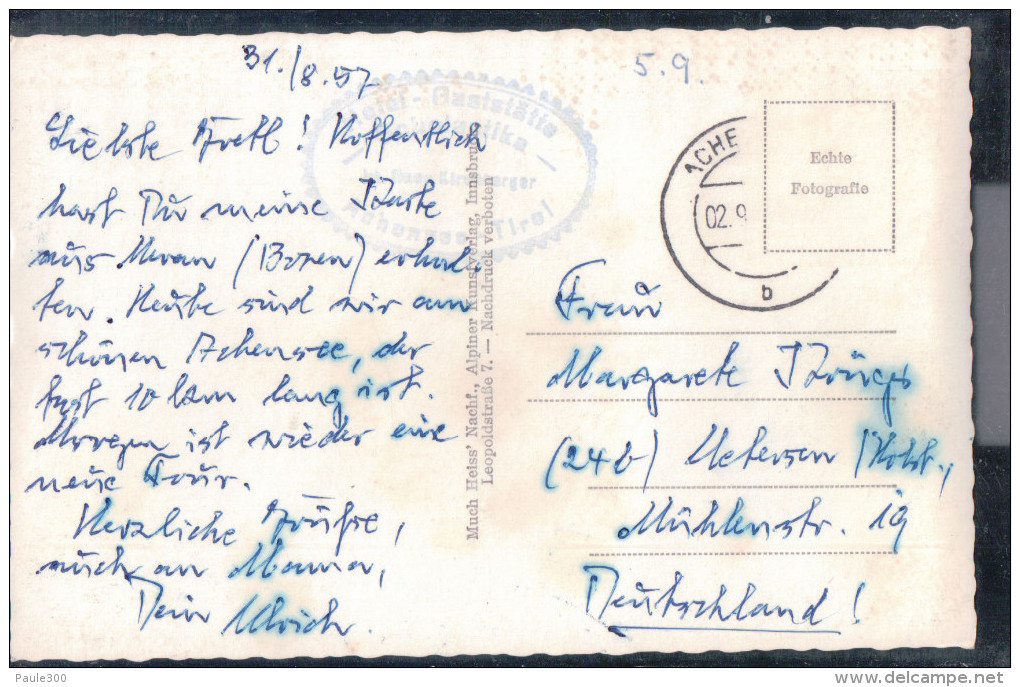 31./8.57
Liebste Gretl! Hoffentlich
hast Du meine Karte
aus Meran (Bozen) erhal-
ten. Heute sind wir am
schönen Achensee, der
fast 10 km lang ist.
Morgen ist wieder eine
neue Tour.
Herzliche Grüße,
auch an Mama,
Dein Ulrich.
Gaststätte
Achensee Tirol
Much Heiss' Nachf., Alpiner Kunstverlag, Innsbruck
Leopoldstraße 7. — Nachdruck verboten
5.9.
ACHE
02.9
b
Echte
Fotografie
Frau
Margarete
(24b) Uetersen /Holst.,
Mühlenstr. 19
Deutschland!
Paule300
delcampe.net